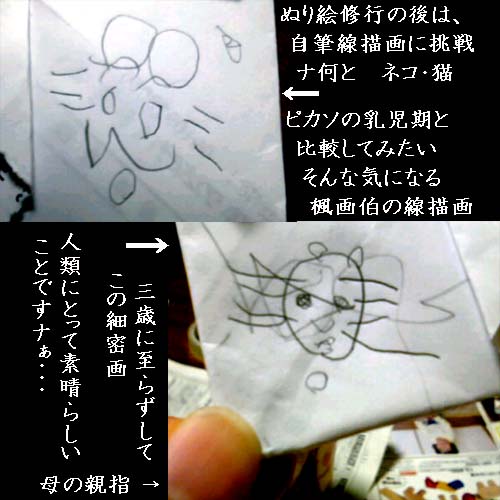 ぬり絵修行の後は、
自筆線描画に挑戦
ナ何と ネコ・猫
←
ピカソの乳児期と
比較してみたい
そんな気になる
楓画伯の線描画
→
三歳に至らずして
この細密画
人類にとって素晴らしい
ことですナぁ・・・
母の親指 →